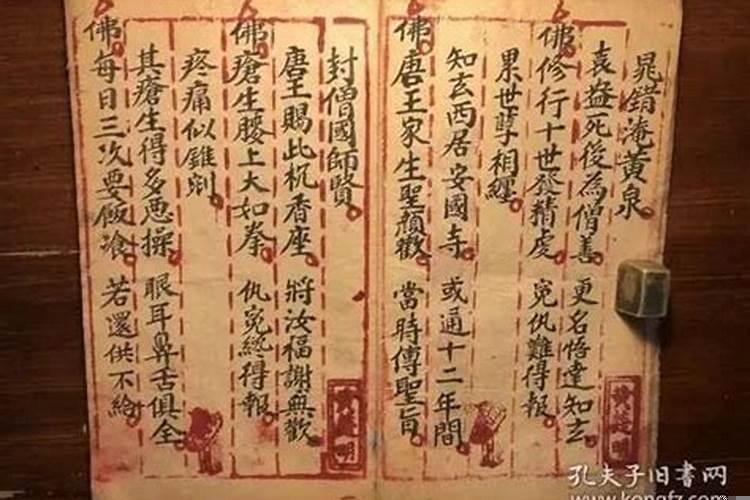 晁錯淹黄泉
袁益死後為僧善 更名悟達知玄
佛修行十世發精虔 冤仇難得報
累世孽相纏
知玄西居安國寺 或通十二年間
佛唐王家生聖顏歡 當時傳聖旨
封僧國師賢
唐王賜此杌香座 將汝福謝無歡
佛瘡生腰上大如拳 仇冤終得報
疼痛似錐剜
其瘡生得多悪操 眼耳鼻舌俱全
佛每日三次要飯飡 若還供不給
孔夫子旧书网